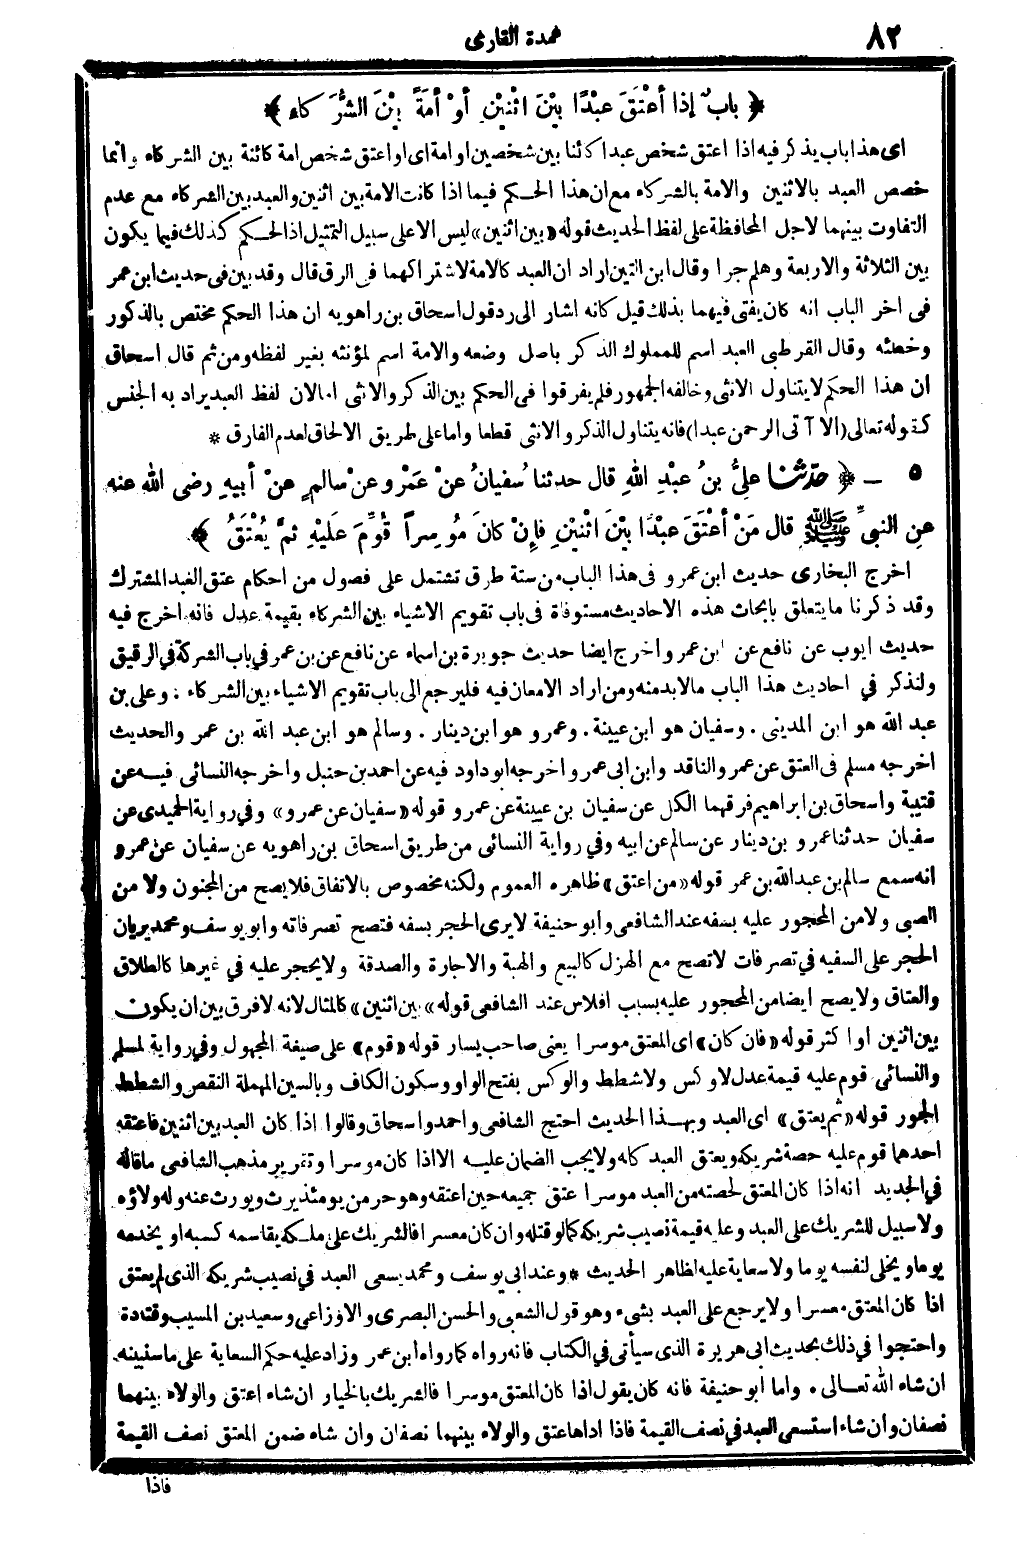 ٨٢
عمدة القارى
﴿ بابٌ إذا أعْتَقَ عبْدًا بيْنَ اثْنَيْنِ أوْ أمَةً بيْنَ الشُّرَكاءِ ﴾
اى هذا باب يذكر فيه اذا اعتق شخص عبدا كائنا بين شخصين او امة اى او اعتق شخص امة كائنة بين الشركاء وانما
خصص العبد بالاثنين والامة بالشركاء مع ان هذا الحكم فيما اذا كانت الامة بين اثنين والعبد بين الشركاء مع عدم
التفاوت بينهما لاجل المحافظة على لفظ الحديث قوله «بين اثنين» ليس الا على سبيل التمثيل اذ الحكم كذلك فيما يكون
بين الثلاثة والاربعة وهلم جرا وقال ابن التين اراد ان العبد كالامة لاشتراكهما فى الرق قال وقد بين فى حديث ابن عمر
فى اخر الباب انه كان يفتى فيهما بذلك قيل كانه اشار الى رد قول اسحاق بن راهويه ان هذا الحكم مختص بالذكور
وخطئه وقال القرطبى العبد اسم للمملوك الذكر باصل وضعه والامة اسم لمؤنثه بغير لفظه ومن ثم قال اسحاق
ان هذا الحكم لا يتناول الانثى وخالفه الجمهور فلم يفرقوا فى الحكم بين الذكر والانثى اما لان لفظ العبد يراد به الجنس
كقوله تعالى (الا آتى الرحمن عبدا) فانه يتناول الذكر والانثى قطعا واما على طريق الالحاق لعدم الفارق *
٥ ــ ﴿ حدّثنا علىُّ بنُ عبْدِ اللهِ قال حدثنا سُفيانُ عنْ عَمْرو عنْ سالمٍ عنْ أبيهِ رضى الله عنه
عنِ النبىِّ ﷺ قال مَنْ أعْتَقَ عبْدًا بيْنَ اثْنَيْنِ فإنْ كانَ مُوسِراً قُوِّمَ عَلَيْهِ ثمَّ يُعْتَقُ ﴾
اخرج البخارى حديث ابن عمرو فى هذا الباب من ستة طرق تشتمل على فصول من احكام عتق العبد المشترك
وقد ذكرنا ما يتعلق بابحاث هذه الاحاديث مستوفاة فى باب تقويم الاشياء بين الشركاء بقيمة عدل فانه اخرج فيه
حديث ايوب عن نافع عن ابن عمر و اخرج ايضا حديث جويرة بن اسماء عن نافع عن بن عمر في باب الشركة في الرقيق
ولنذكر في احاديث هذا الباب ما لا بد منه ومن اراد الامعان فيه فليرجع الى باب تقويم الاشياء بين الشركاء . وعلى بن
عبد الله هو ابن المدينى . وسفيان هو ابن عيينة . وعمرو هو ابن دينار . وسالم هو ابن عبد الله بن عمر والحديث
اخرجه مسلم فى العتق عن عمرو الناقد وابن ابى عمر و اخرجه ابو داود فيه عن احمد بن حنبل واخرجه النسائى فيه عن
قتيبة واسحاق بن ابراهيم فرقهما الكل عن سفيان بن عيينة عن عمرو قوله «سفيان عن عمرو» وفي رواية الحميدى عن
سفيان حدثنا عمرو بن دينار عن سالم عن ابيه وفي رواية النسائى من طريق اسحاق بن راهويه عن سفيان عن عمرو
انه سمع سالم بن عبد الله بن عمر قوله «من اعتق» ظاهره العموم ولكنه مخصوص بالاتفاق فلا يصح من المجنون ولا من
الصبى ولا من المحجور عليه بسفه عند الشافعى وابو حنيفة لا يرى الحجر بسفه فتصح تصرفاته وابو يوسف ومحمد يريان
الحجر على السفيه في تصرفات لا تصح مع الهزل كالبيع والهبة والاجارة والصدقة ولا يحجر عليه في غيرها كالطلاق
والعتاق ولا يصح ايضا من المحجور عليه بسبب افلاس عند الشافعى قوله «بين اثنين» كالمثال لانه لا فرق بين ان يكون
بين اثنين او اكثر قوله «فان كان» اى المعتق موسرا يعنى صاحب يسار قوله «قوم» على صيغة المجهول وفي رواية لمسلم
والنسائى قوم عليه قيمة عدل لا وكس ولا شطط والوكس بفتح الواو وسكون الكاف وبالسين المهملة النقص والشطط
الجور قوله «ثم يعتق» اى العبد وبهذا الحديث احتج الشافعى واحمد واسحاق وقالوا اذا كان العبد بين اثنين فاعتقه
احدهما قوم عليه حصة شريكه ويعتق العبد كله ولا يجب الضمان عليه الا اذا كان موسرا وتقرير مذهب الشافعى ما قاله
في الجديد انه اذا كان المعتق لحصته من العبد موسرا عتق جميعه حين اعتقه وهو حر من يومئذ يرث ويورث عنه وله ولاؤه
ولا سبيل للشريك على العبد وعليه قيمة نصيب شريكه كما لو قتله وان كان معسرا فالشريك على ملكه يقاسمه كسبه او يخدمه
يوما ويخلى لنفسه يوما ولا سعاية عليه لظاهر الحديث * وعند ابى يوسف ومحمد يسعى العبد في نصيب شريكه الذى لم يعتق
اذا كان المعتق معسرا ولا يرجع على العبد بشىء وهو قول الشعبى والحسن البصرى والاوزاعى وسعيد بن المسيب وقتادة
واحتجوا في ذلك بحديث ابى هريرة الذى سيأتى في الكتاب فانه رواه كما رواه ابن عمر وزاد عليه حكم السعاية على ما سنبينه
ان شاء الله تعالى . واما ابو حنيفة فانه كان يقول اذا كان المعتق موسرا فالشريك بالخيار ان شاء اعتق والولاء بينهما
نصفان وان شاء استسعى العبد في نصف القيمة فاذا اداها عتق والولاء بينهما نصفان وان شاء ضمن المعتق نصف القيمة
فاذا